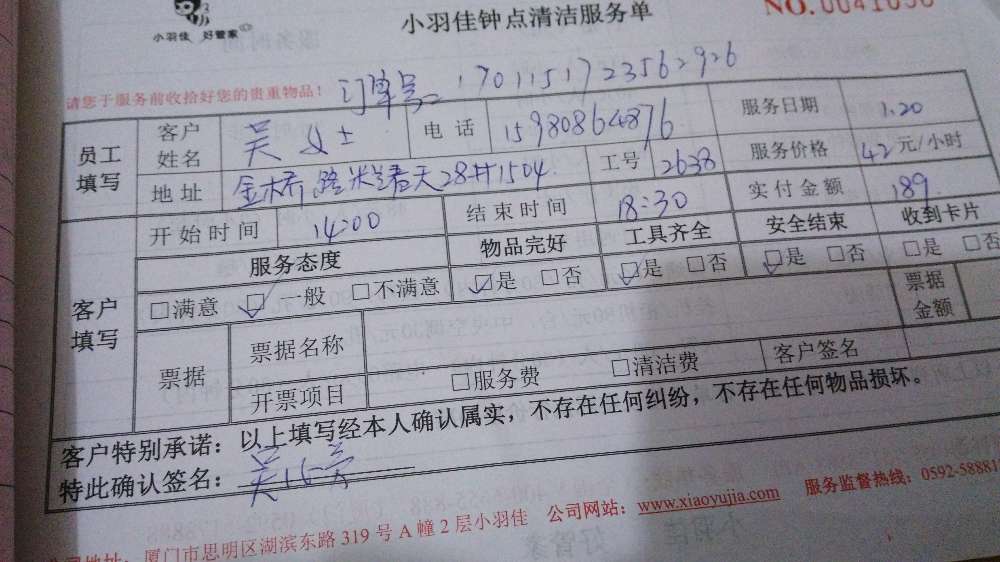 小羽佳 好管家
小羽佳钟点清洁服务单
请您于服务前收拾好您的贵重物品！
订单号: 17011517235629 26
员工填写
客户姓名 吴女士 电话 15980864876 服务日期 1.20
地址 28#1504 工号 2638 服务价格 42 元/小时
客户填写
开始时间 14:00 结束时间 18:30 实付金额 189
服务态度 物品完好 工具齐全 安全结束 收到卡片
□满意 ☑一般 □不满意 ☑是 □否 ☑是 □否 ☑是 □否 □是 □否
票据 票据名称 票据金额
开票项目 □服务费 □清洁费 客户签名
客户特别承诺：以上填写经本人确认属实，不存在任何纠纷，不存在任何物品损坏。
特此确认签名：吴
公司地址：厦门市思明区湖滨东路 319 号 A 幢 2 层小羽佳 公司网站：www.xiaoyujia.com 服务监督热线：0592-58881